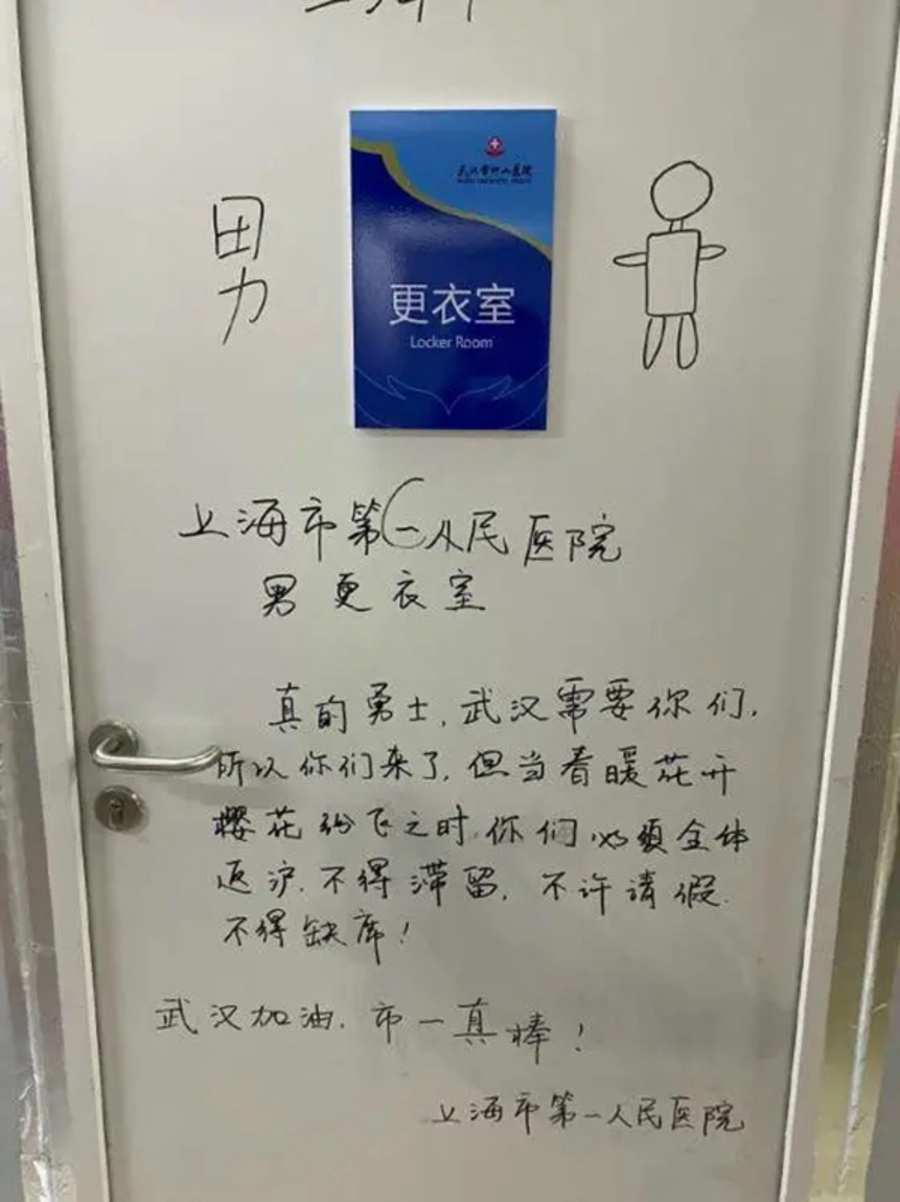 上海市
男
武汉雷神山医院
更衣室
Locker Room
上海市第一人民医院
男更衣室
真的勇士,武汉需要你们,
所以你们来了,但当春暖花开
樱花纷飞之时,你们必须全体
返沪,不得滞留,不许请假,
不得缺席!
武汉加油,市一真棒!
上海市第一人民医院